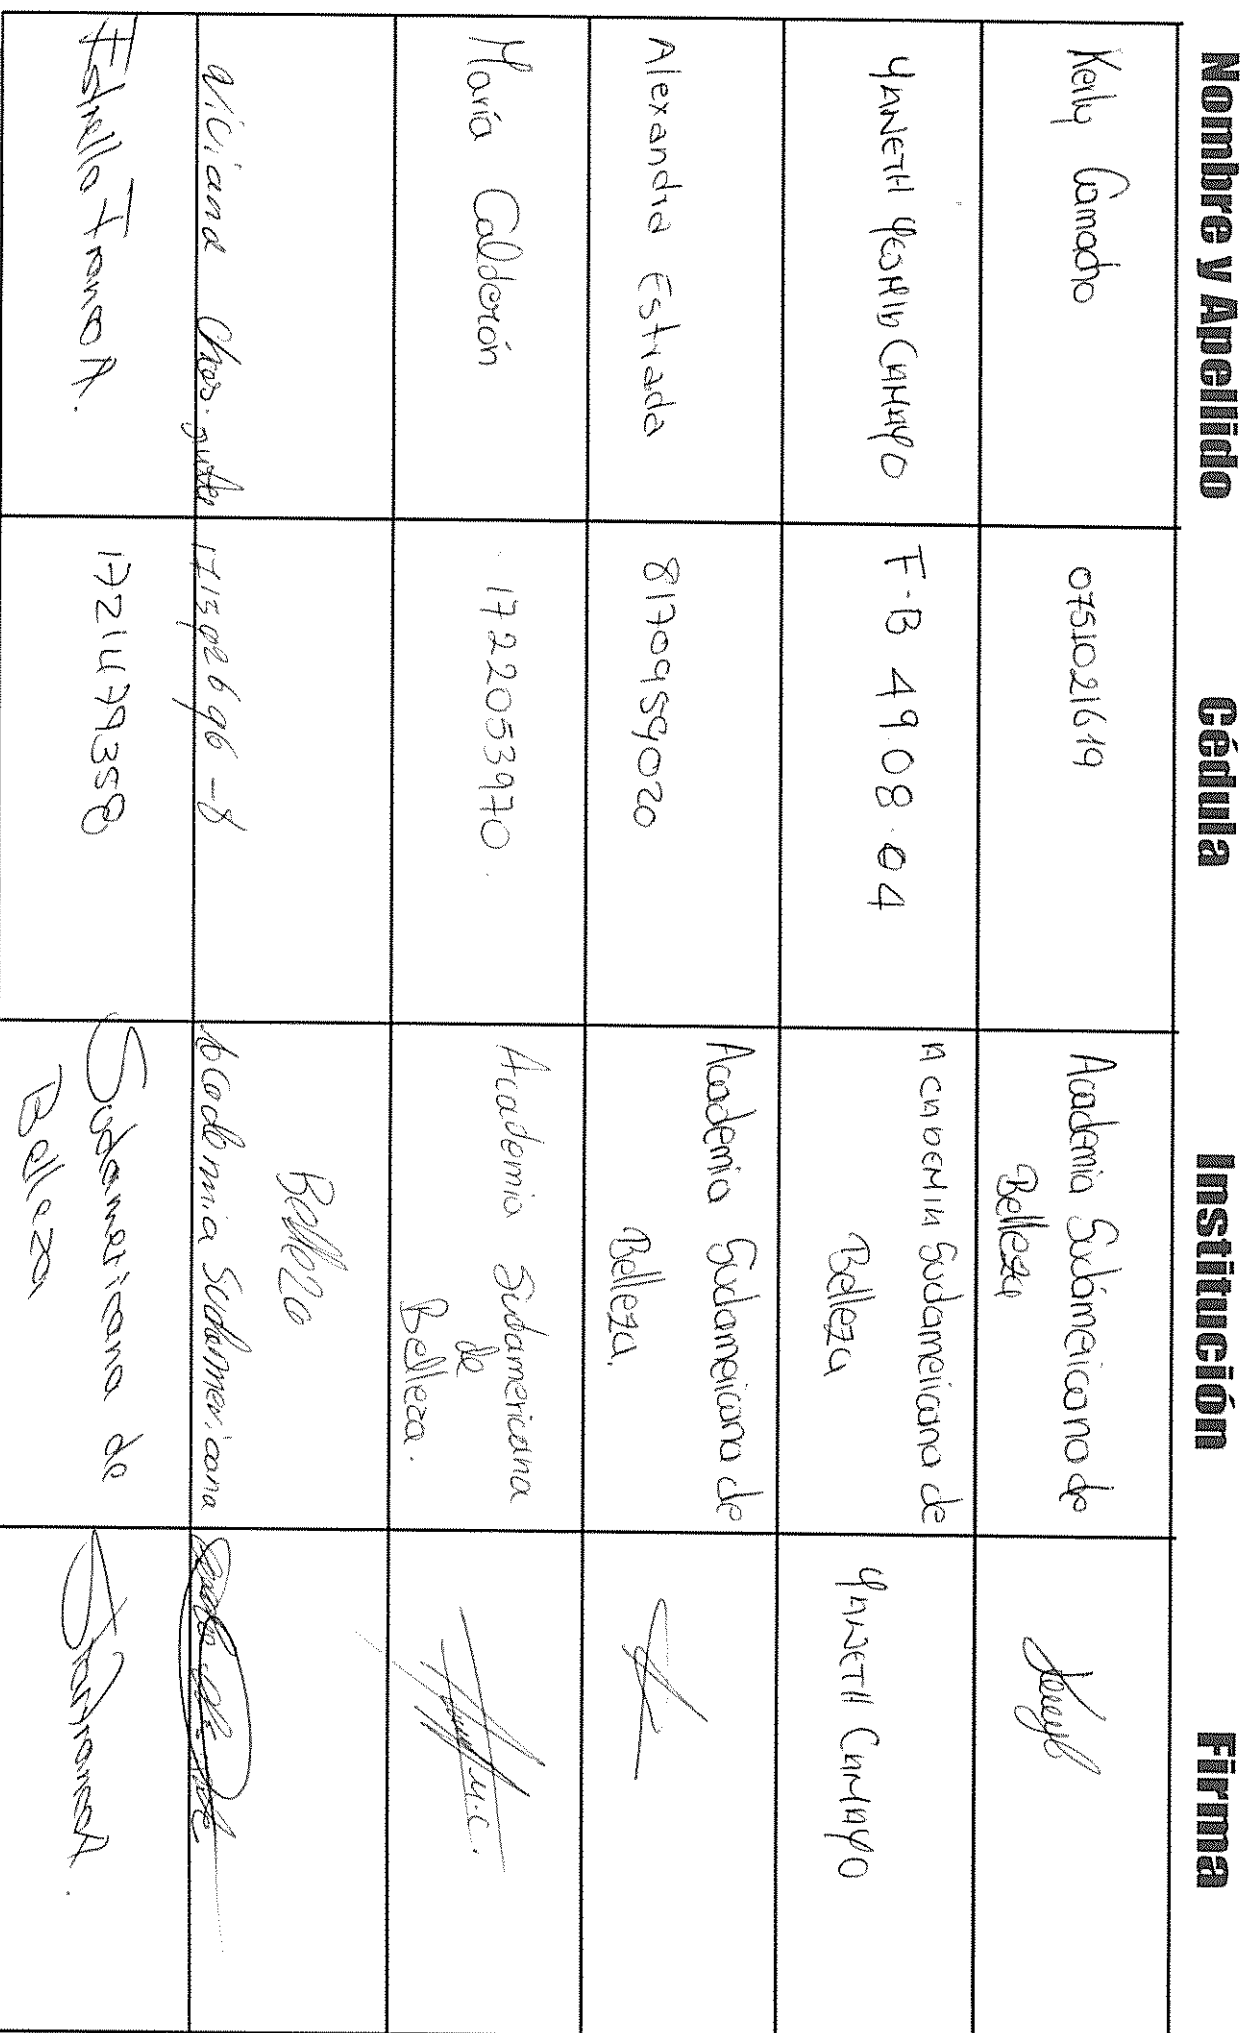 Nombre y Apellido Cédula Institución Firma
Kerly Camacho 0751021619 Academia Sudámeicano de
Belleza
YANNETH YESMID CAMAYO F-B 49.08.04 ACADEMIA Sudameiicana de
Belleza YANNETH CAMAYO
Alexandra Estrada 8170959020 Academia Sudameiicana de
Belleza.
María Calderón 1722053970. Academia Sudamericana
de
Belleza. M.C.
Viviana Academia Sudamericana
Belleza
Estrella Franco A. 1721479358 Sudamericana de
Belleza